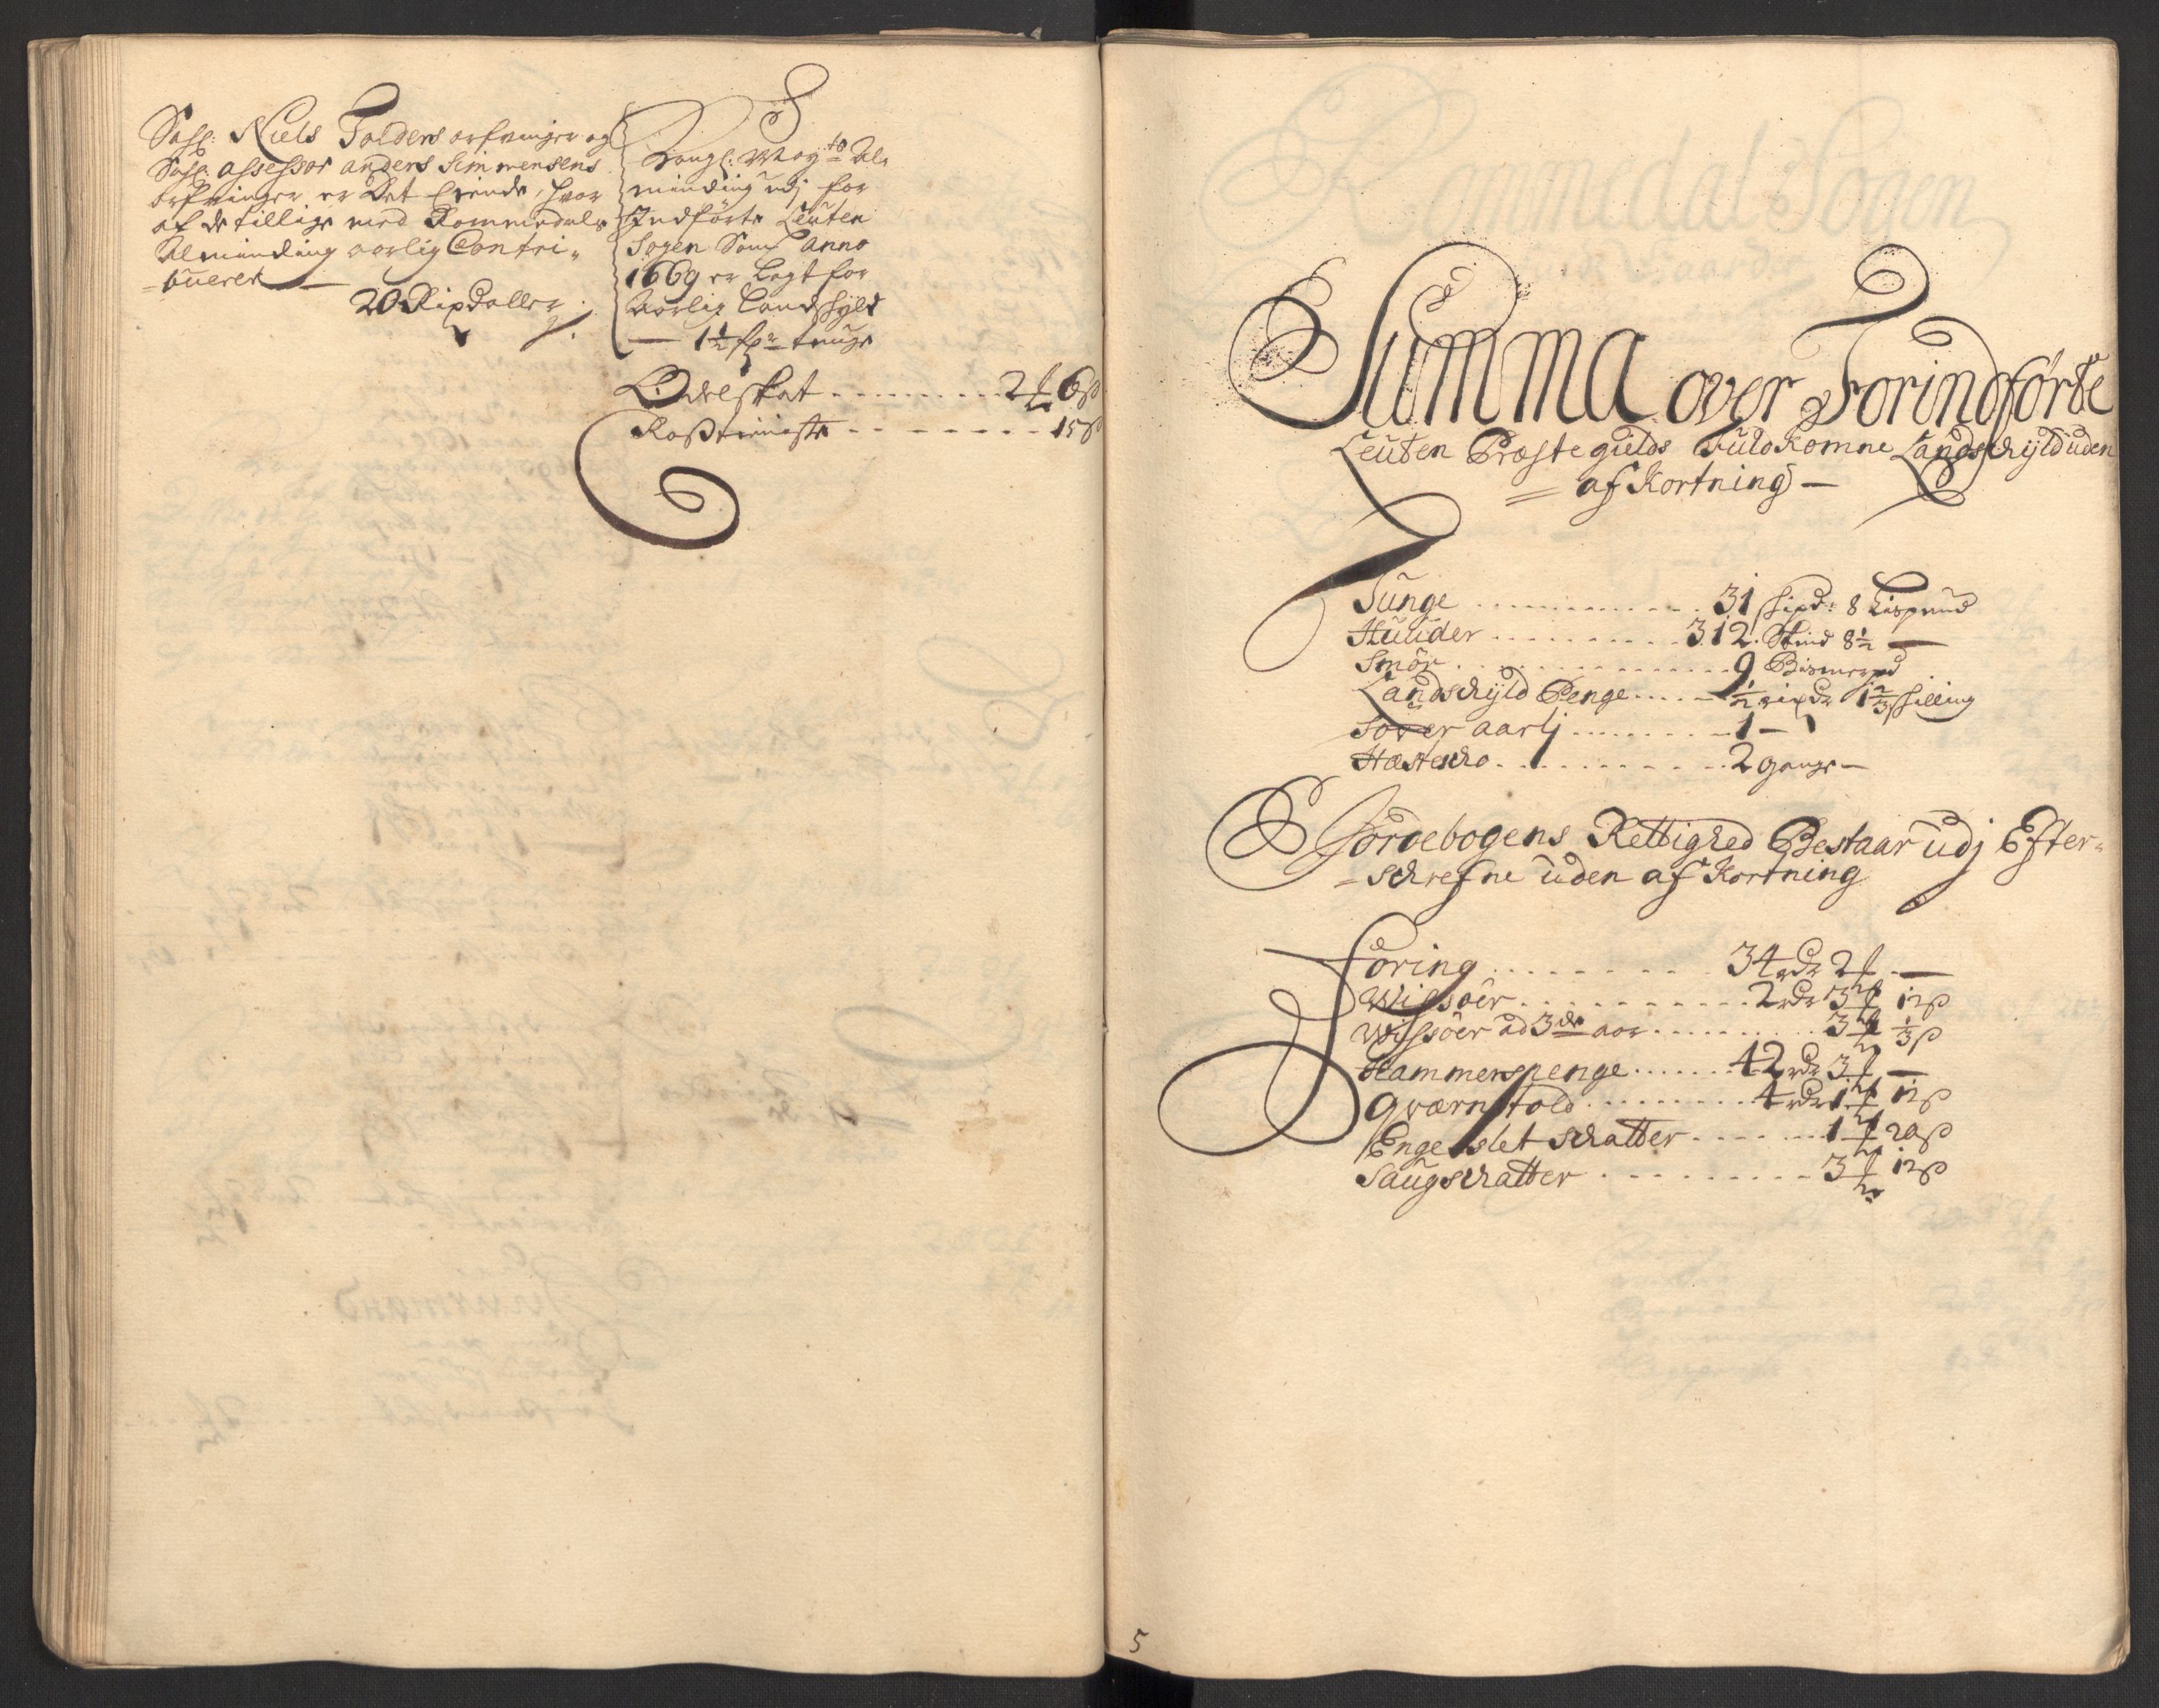 Sahl: Niels Tolders arfvinger og
Sahl: Assessor anders Simmensens
arfvinger er Det Eiende, hvor
af de tillige med Rommedals
Alminding aarlig Contri„
=bueret
20 Rixdaller
Kongl: May:ts Al„
minding udj for
Indførte Leuten
Sogen Som anno
1669 er Lagt for
Aarlig Landschyld
— 1½ tunge
Odelskat . . . . . . . . . 2 ₰ 6 ß
Rostieniste . . . . . . . . 15 ß
Summa over Forindførte
Leuten Præstegields Fuldkomne Landschyld uden
= af Kortning —
Tunge . . . . . . . . . . . 31 skipd: 8 Lispund
Huuder . . . . . . . . . . 312. Skind 8½ —
Smör . . . . . . . . . . . 9 Bismerpd
Landschyld Penge . . . . – ½ rixdr 1⅔ skilling
Sover aarlj . . . . . . . . 1 –
Hæstescho . . . . . . . . . 2 gange –
Jordebogens Rettighed Bestaar udj Efter„
= schrefne uden af Kortning
Foring . . . . . . . . . 34 rdr 2 ₰ —
Wissöer . . . . . . . . . . 2 rdr 3 ₰ 12 ß
Wissöer ad 3de aar . . . . . . . . 3 ₰ ⅓ ß
Hammerspenge . . . . . . 42 rdr 3 ₰ —
Qværntold . . . . . . . . . 4 rdr 1 ₰ 12 ß
Engeslet schatter . . . . . . 1 ₰ 20 ß
Saugschatter . . . . . . . . . 3 ₰ 12 ß
5